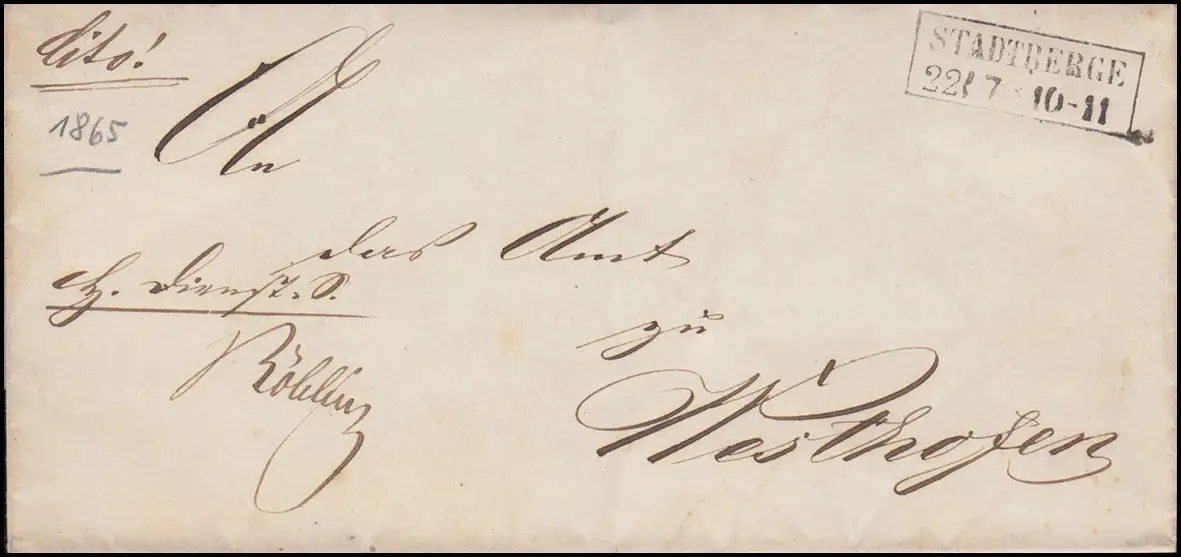 Cito!
STADTBERGE
22 7 10-11
1865
An
das Amt
H. Dienst.S.
zu
Westhofen